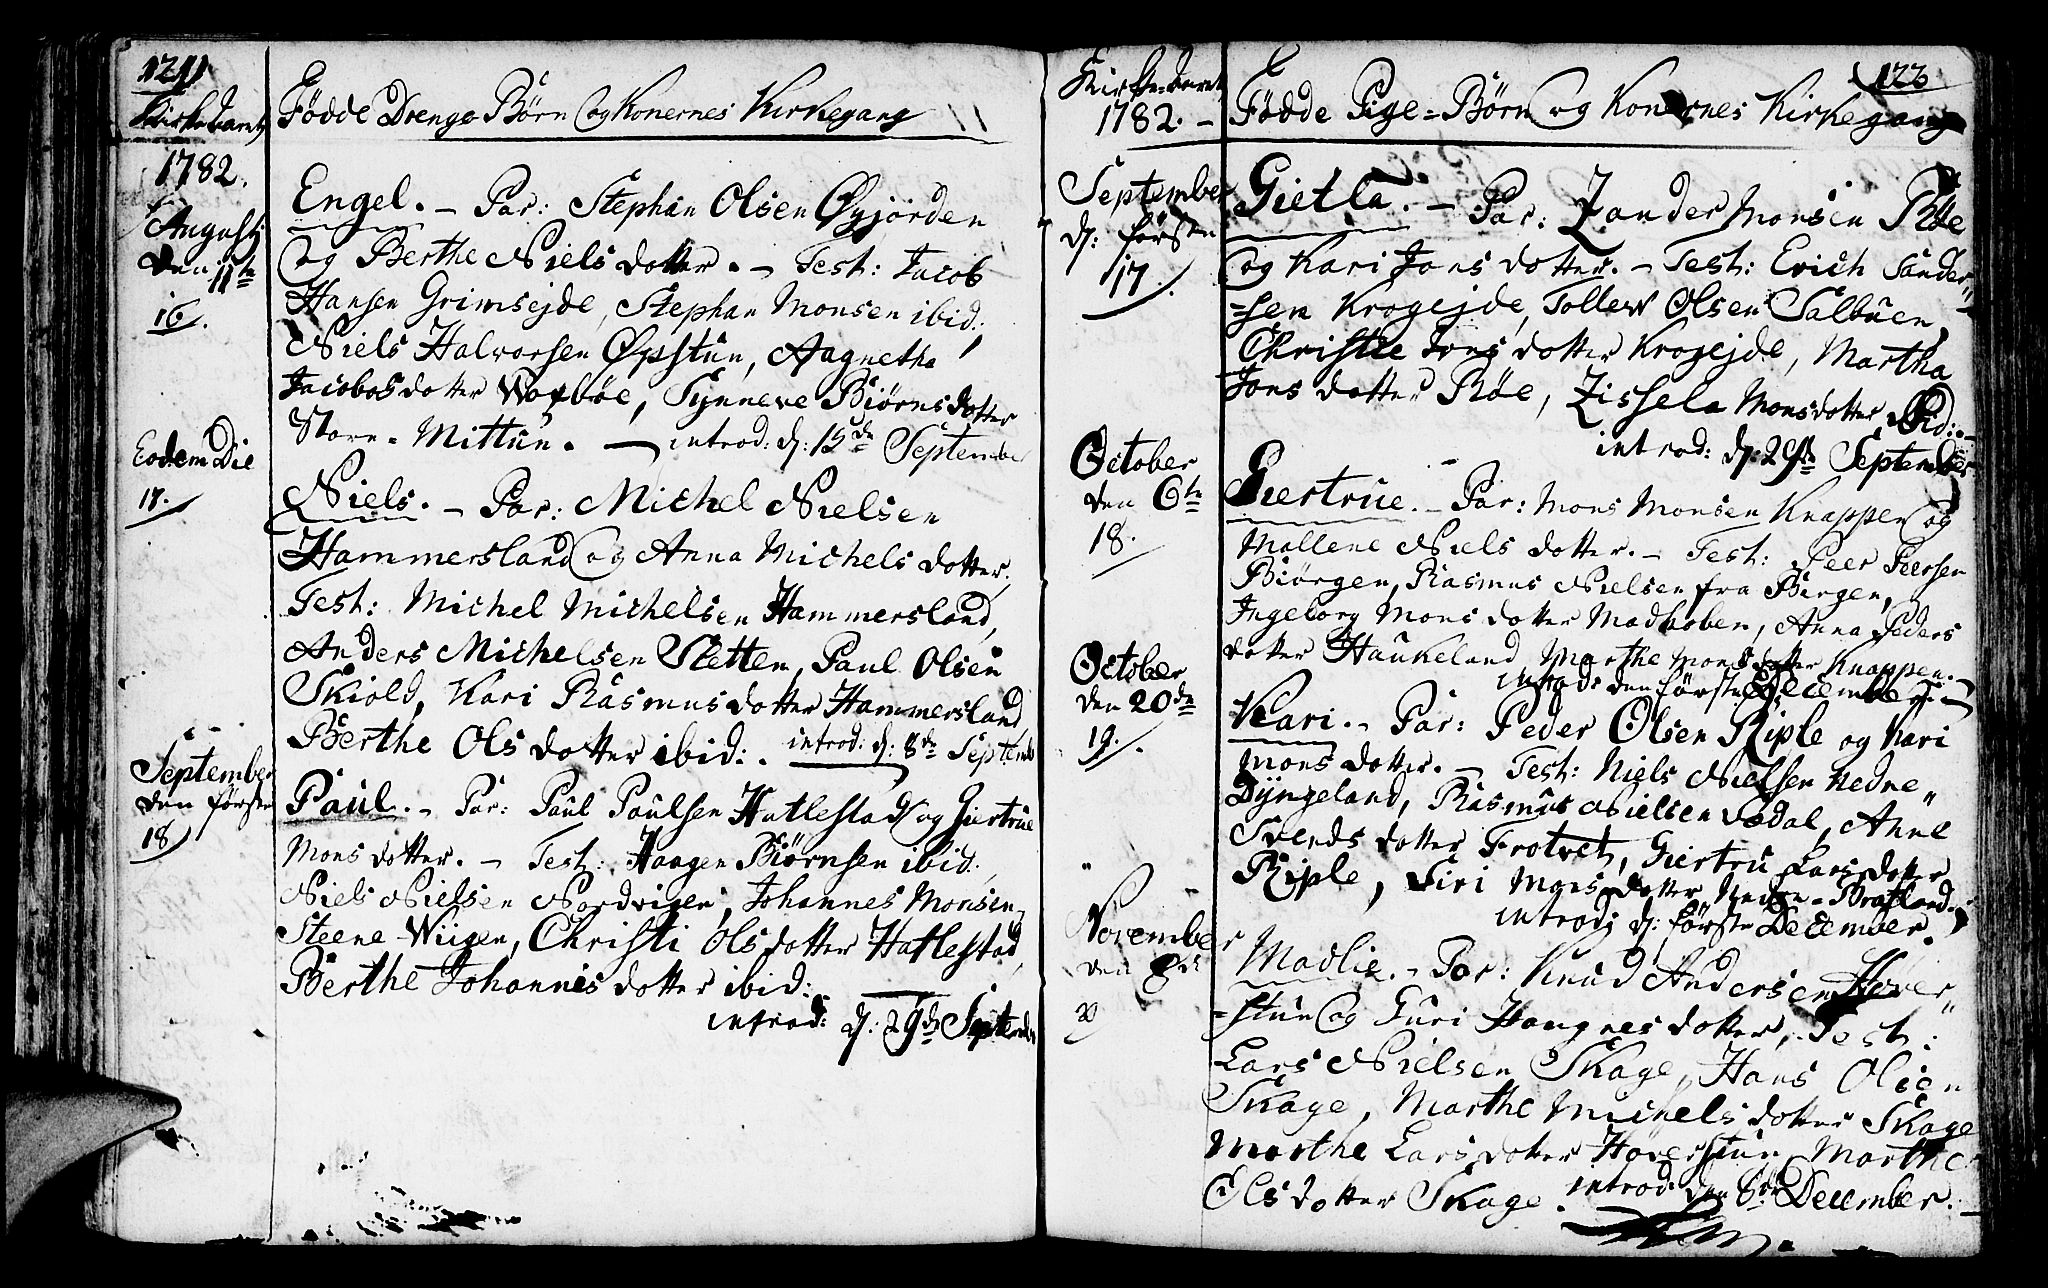 121
Kirke Aaret
Födde Drenge Börn og Konernes Kirkegang
1782.
Augusti
den 11te
16.
Engel. – Par: Stephan Olsen Øyjorden
og Berthe Niels dotter. – Test: Jacob
Hansen Grimsejde, Stephan Monsen ibid:
Niels Halvorsen Øpstun, Aagnetha
Jacobs dotter, Synneve Biörns dotter
Store-Mittun. – introd: d: 15de September
Eodem Die
17.
Niels. – Par: Michel Nielsen
Hammersland og Anna Michels dotter.
Test: Michel Michelsen Hammersland,
Anders Michelsen Sletten, Paul Olsen
Skiold, Kari Rasmus dotter Hammersland
Berthe Ols dotter ibid:. introd: d: 8de Septemb
September
den förste
18
Paul. – Par: Paul Paulsen Hatlestad og Giertrue
Mons dotter. – Test: Haagen Biörnsen ibid:
Niels Nielsen Nordvigen, Johannes Monsen
Steens-Wiigen, Christi Ols dotter Hatlestad,
Berthe Johannes dotter ibid:
introd: d: 29de Septemb
122
Kirke Aaret
1782. –
Födde Pige-Börn og Konernes Kirkegang
September
d: förste
17.
Gietla. – Par: Zander Monsen Röe
og Kari Jons dotter. – Test: Erich Sander
-sen Krogejde, Tollew Olsen Salbuen,
Christie Jons dotter Krogejde, Martha
Jons dotter Röe, Zissela Mons dotter ibid:.
introd: d: 29de September
October
den 6te
18.
Giertrue. – Par: Mons Monsen Knappen og
Mallene Niels dotter. – Test: Peer Peersen
Biörgen, Rasmus Nielsen fra Birgen,
Ingeborg Mons dotter Madhoben, Anna Peders
dotter Haukeland, Marthe Mons dotter Knappen. –
introd: den förste December.
October
den 20de
19.
Kari. – Par: Peder Olsen Riple og Kari
Mons dotter. – Test: Niels Nielsen Nedre
Dyngeland, Rasmus Nielsen Dödal, Anne
Svends dotter Frotvet, Giertru Lars dotter
Riple, Siri Mons dotter Nedre-Bratland.
introd: d: förste December.
November
den
20
Madlie. – Par: Knud Andersen Höver
-stun og Guri Haagnes dotter, Test:
Lars Nielsen Skage, Hans Olsen
Skage, Marthe Michels dotter Skage
Marthe Lars dotter Höverstun, Marthe
Ols dotter Skage. introd: den 8de December.